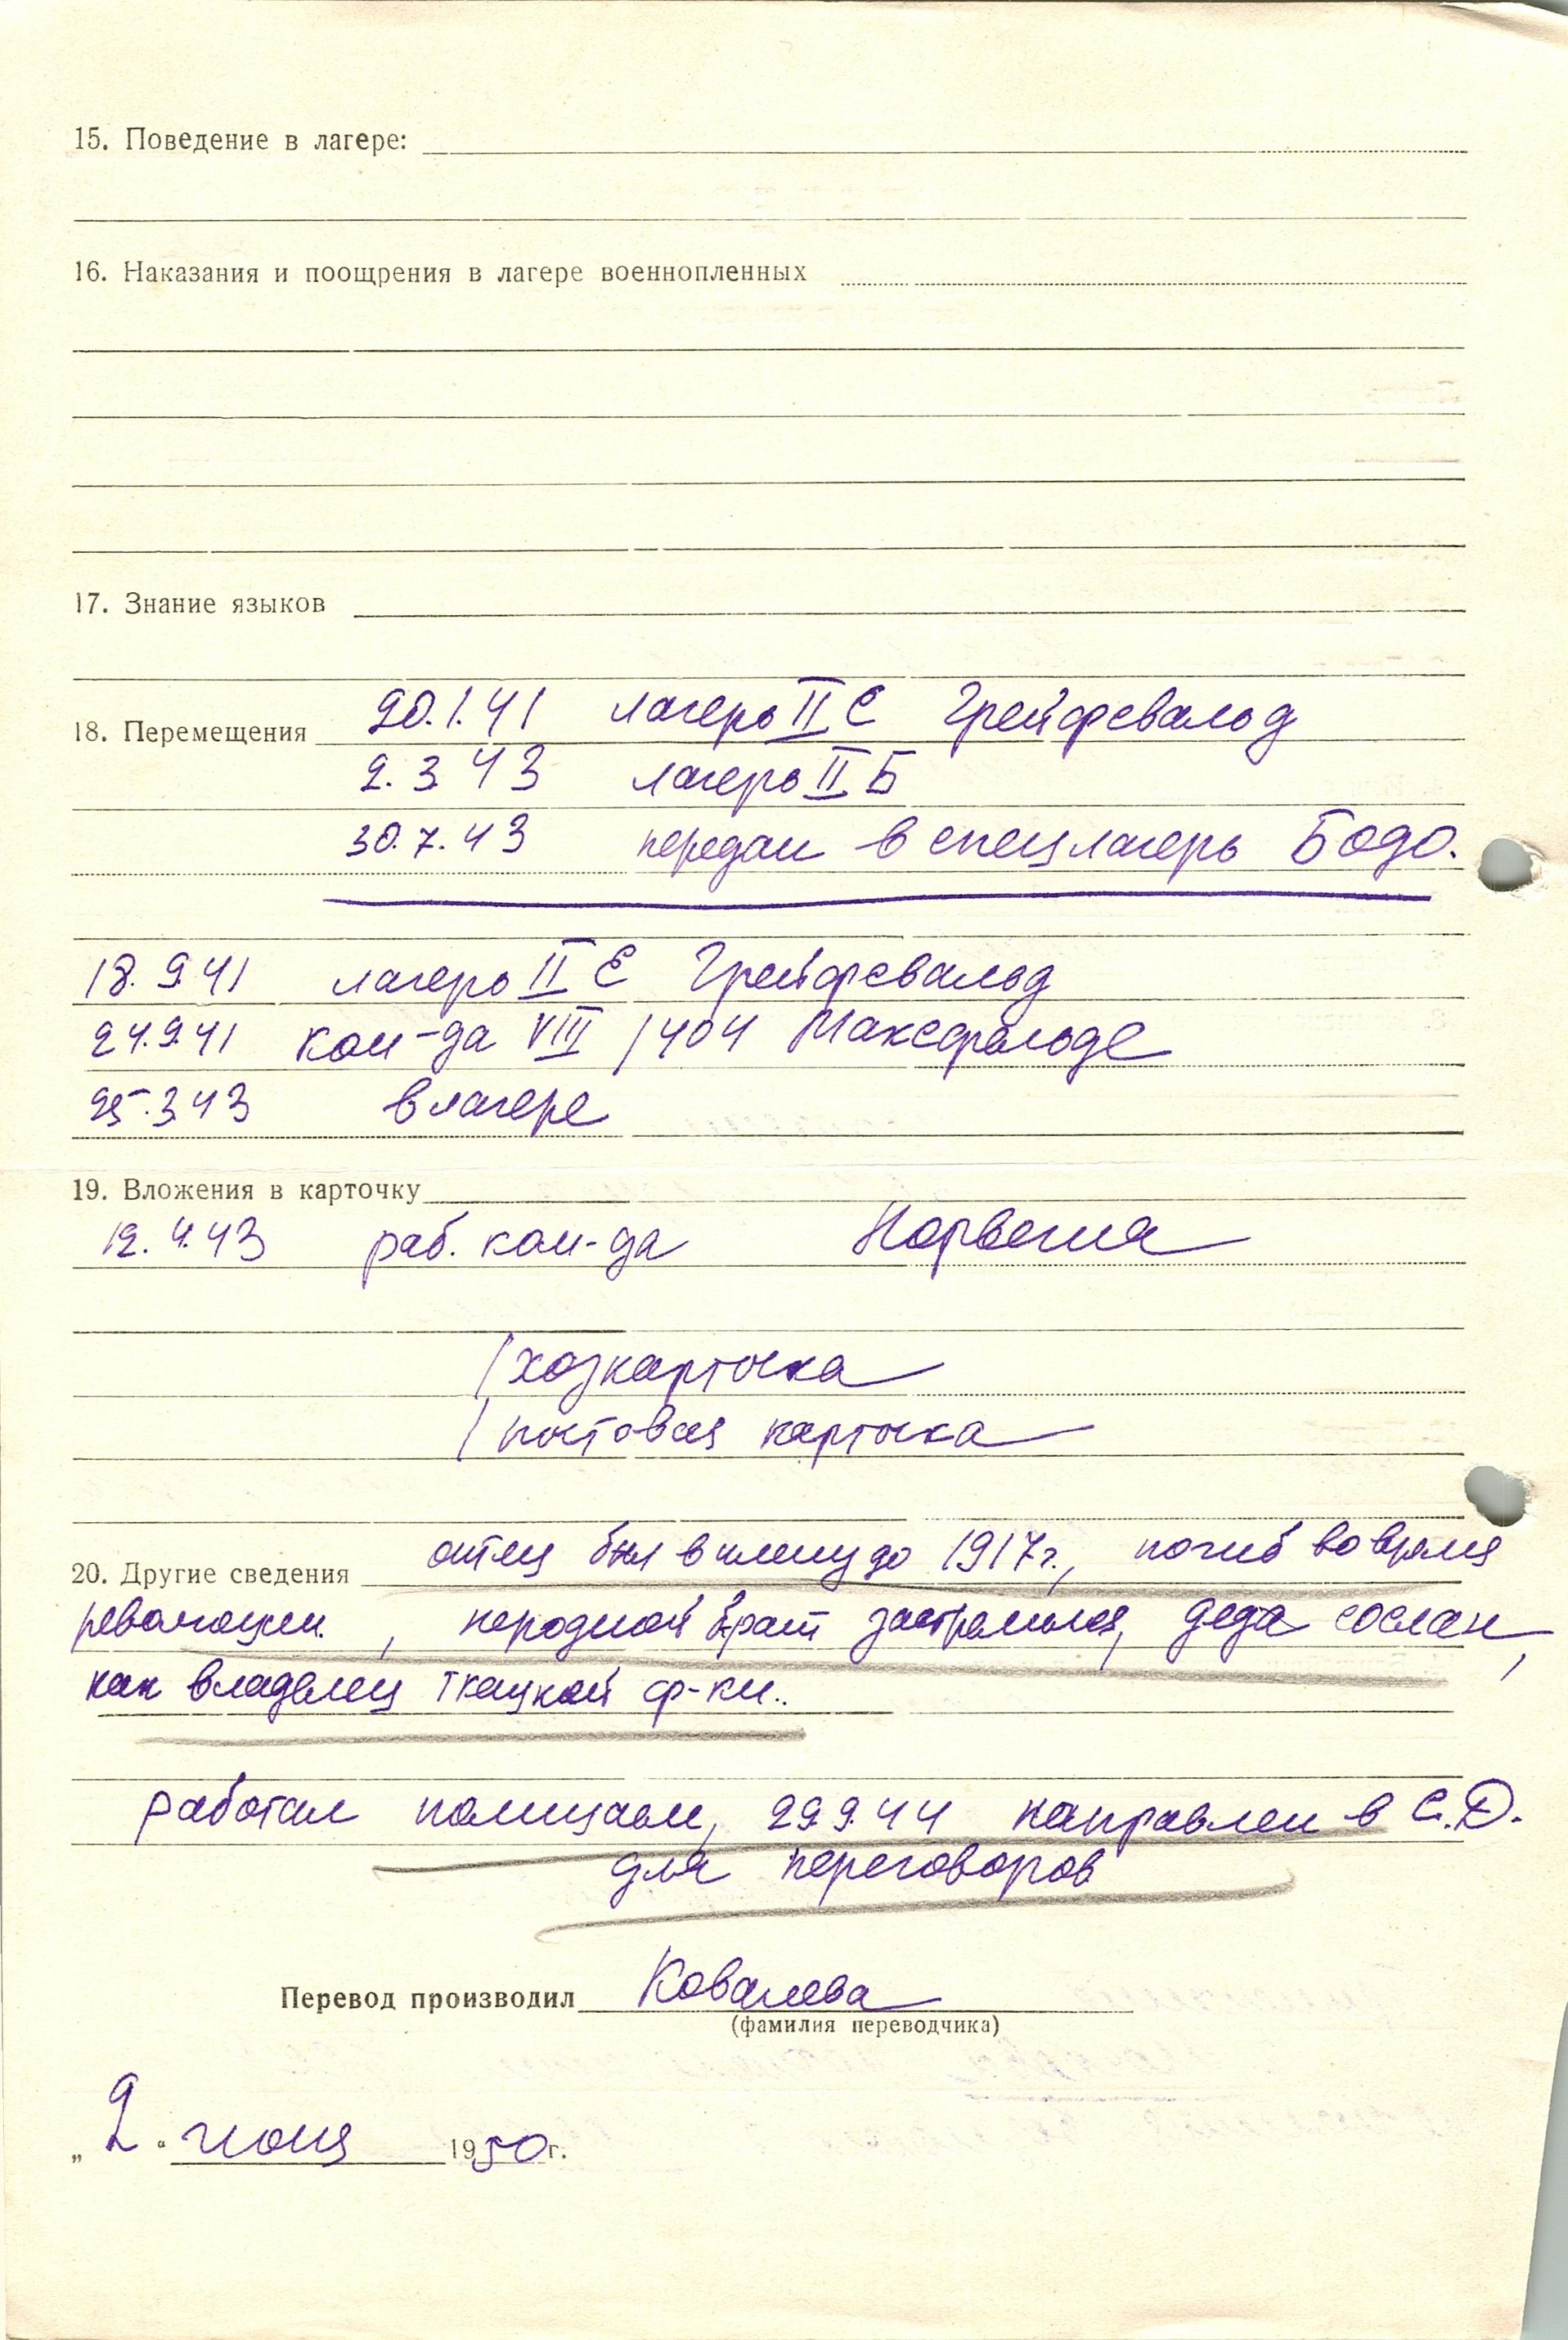 15. Поведение в лагере:
16. Наказания и поощрения в лагере военнопленных
17. Знание языков
20.1.41 лагерь II С Грейфсвальд
18. Перемещения
2.3.43 лагерь II Б
30.7.43 передан в спецлагерь Бодо.
18.9.41 лагерь II Е Грейфсвальд
24.9.41 ком-да VIII /404 Максфельде
25.3.43 в лагере
19. Вложения в карточку
12.4.43 раб. ком-да Норвегия
/хозкарточка
/почтовая карточка
отец был в плену до 1917 г., погиб во время
20. Другие сведения
революции, неродной брат застрелился, деда сослан,
как владелец ткацкой ф-ки..
работал полицаем, 29.9.44 направлен в С.Д.
для переговоров
Перевод производил Ковалева
(фамилия переводчика)
„2" июня 1950 г.